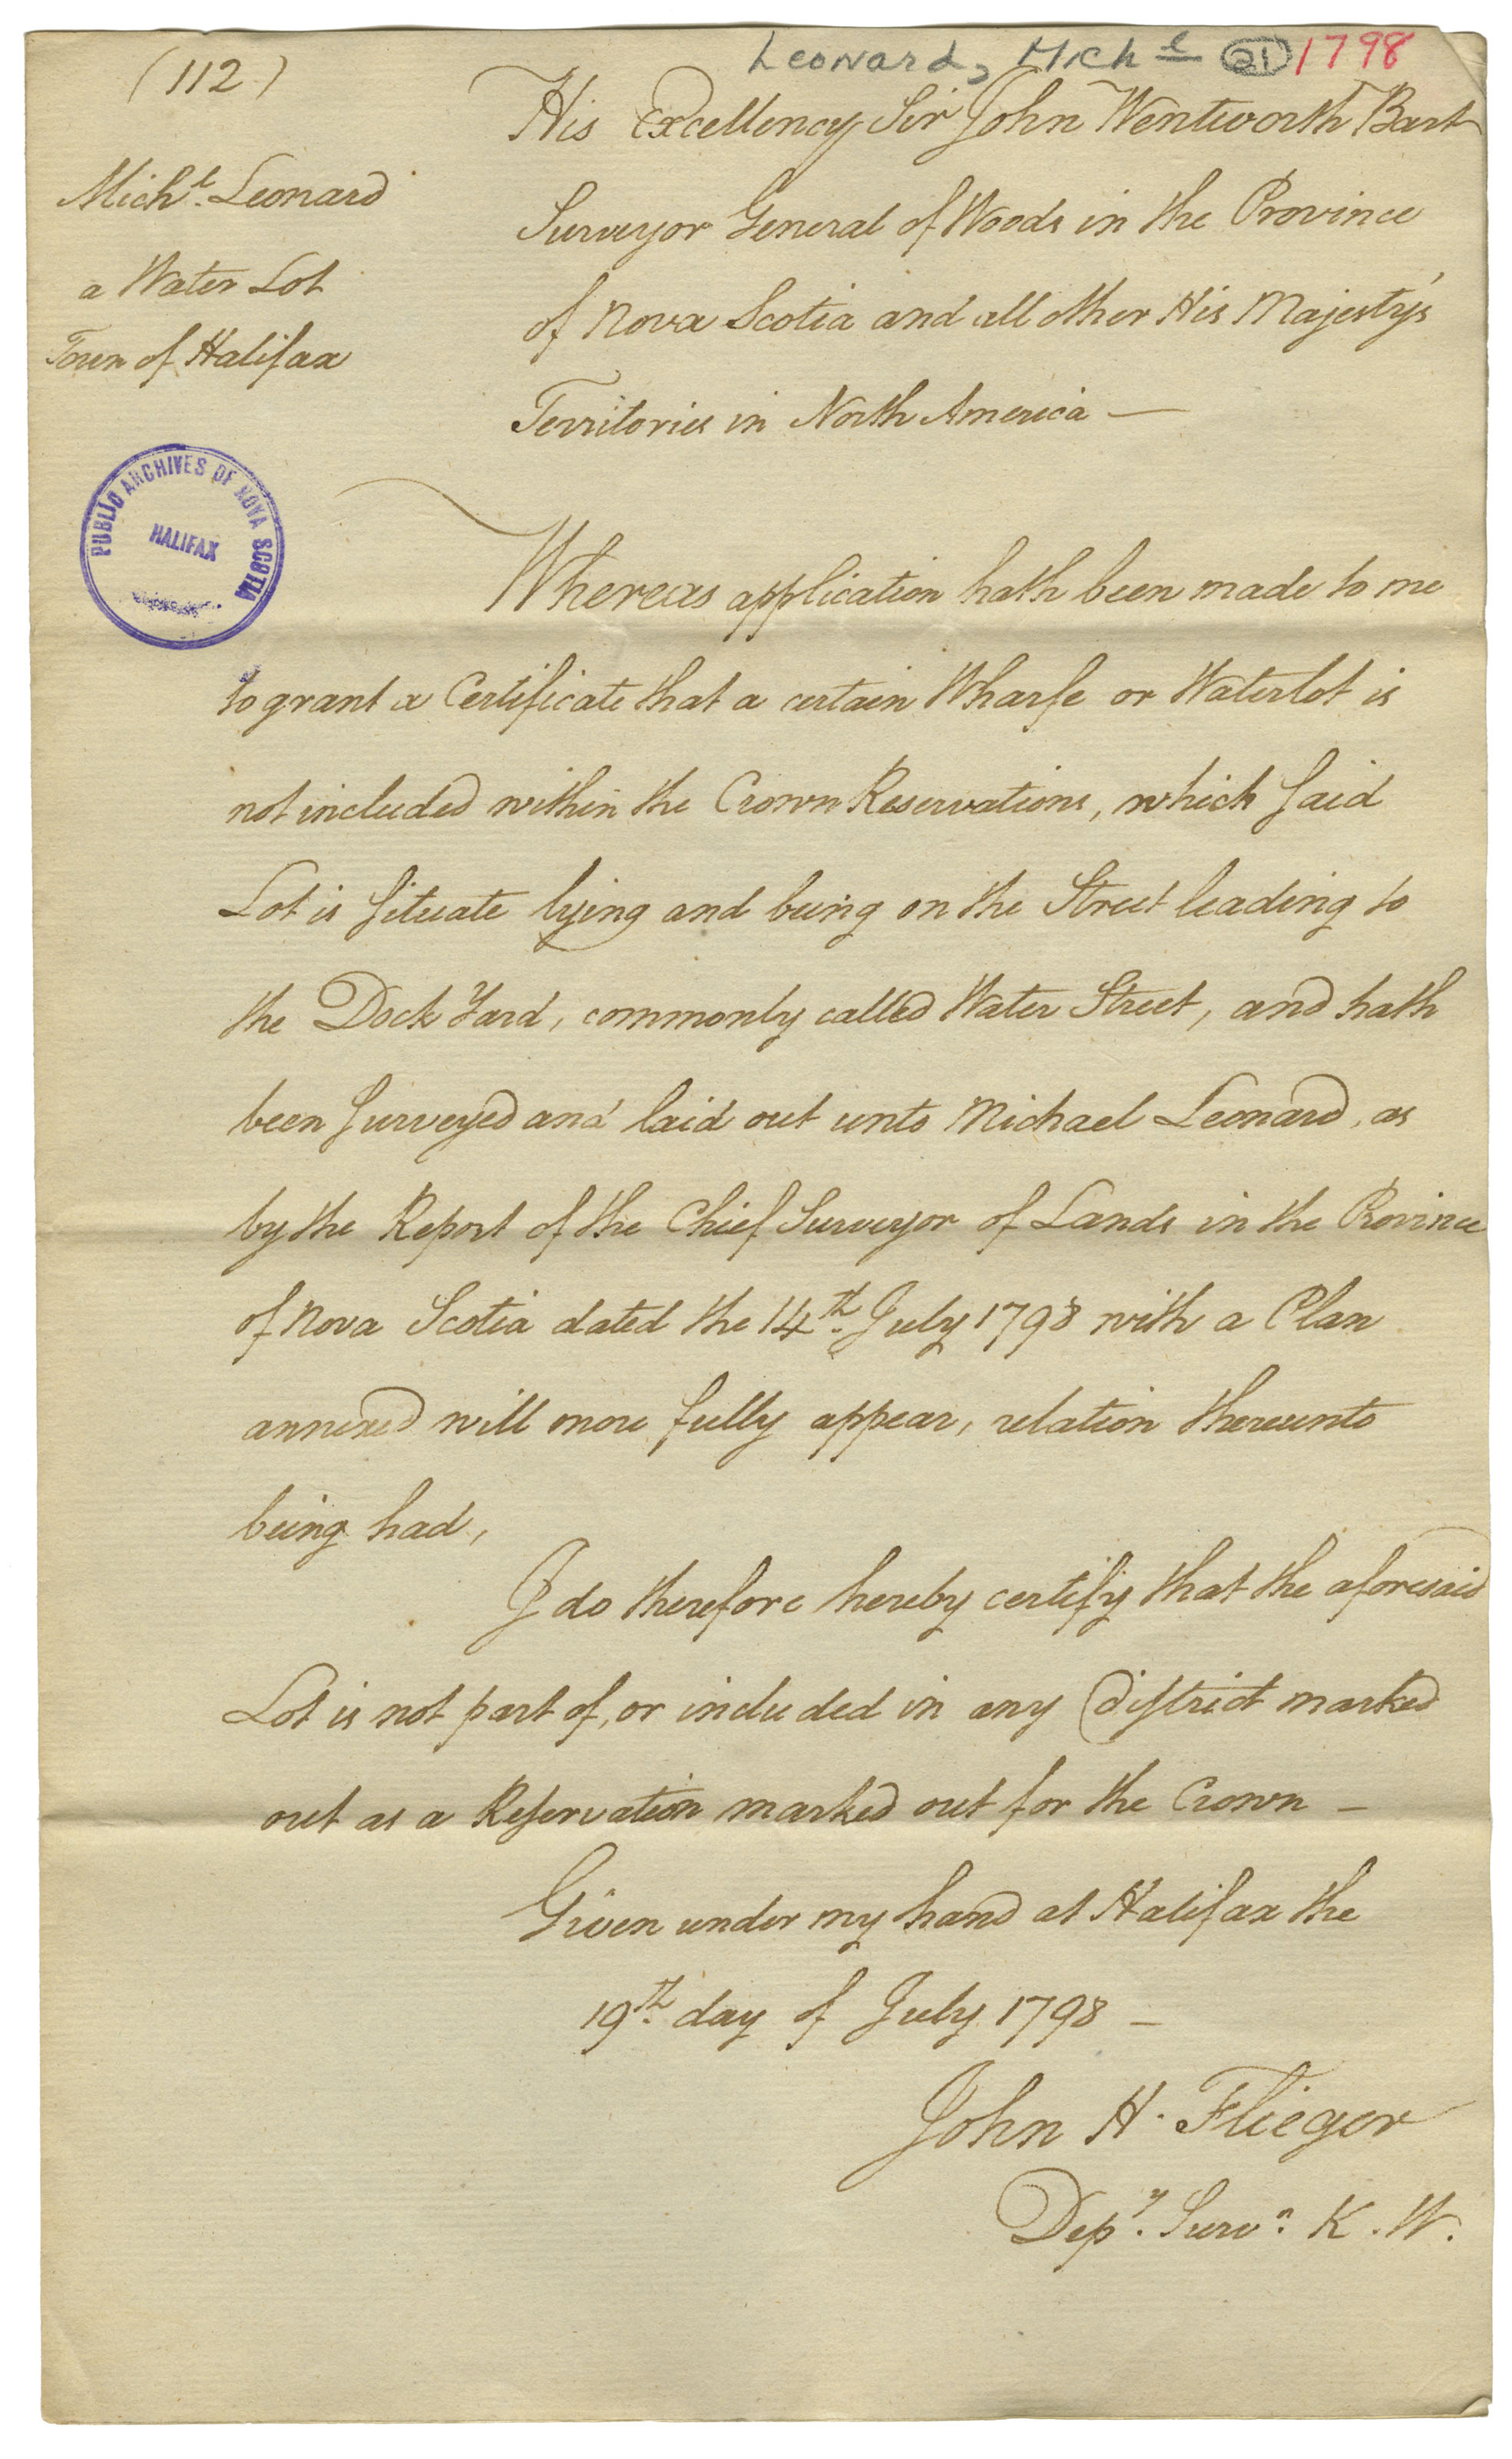 Leonard, Michl 21 1798
(112)
His Excellency Sir John Wentworth Bart
Surveyor General of Woods in the Province
of Nova Scotia and all other His Majesty's
Territories in North America —
Michl. Leonard
a Water Lot
Town of Halifax
PUBLIC ARCHIVES OF NOVA SCOTIA
HALIFAX
Whereas application hath been made to me
to grant a Certificate that a certain Wharfe or Waterlot is
not included within the Crown Reservations, which said
Lot is situate lying and being on the Street leading to
the Dock Yard, commonly called Water Street, and hath
been surveyed and laid out unto Michael Leonard, as
by the Report of the Chief Surveyor of Lands in the Province
of Nova Scotia dated the 14th. July 1798 with a Plan
annexed will more fully appear, relation thereunto
being had,
I do therefore hereby certify that the aforesaid
Lot is not part of, or included in any District marked
out as a Reservation marked out for the Crown —
Given under my hand at Halifax the
19th. day of July 1798 —
John H. Flieger
Depy. Survr. K. W.